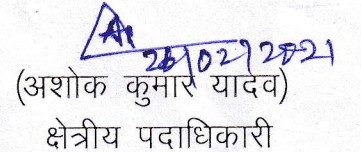 26/02/2021
(अशोक कुमार यादव)
क्षेत्रीय पदाधिकारी